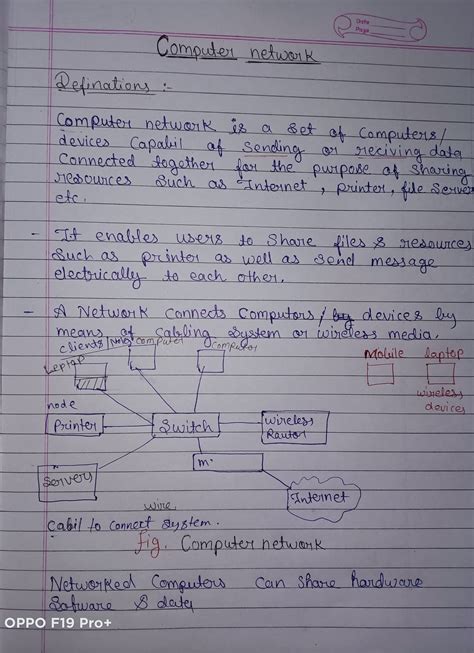 Date
Page
Computer network
Definations :-
Computer network is a set of Computers/
devices Capabil of Sending or reciving data
Connected together for the purpose of sharing
resources Such as Internet, printer, file Server
etc.
- It enables users to share files & resources
Such as printer as well as send message
electrically to each other.
- A Network Connects Computors / by devices by
means of Cabling System or wireless media.
clients / computer
computor
Leptop
Mobile laptop
wireless
devices
node
Printer
Switch
wireless
Rautor
m.
Servers
Internet
wire
Cabil to Connect System.
Fig. Computer network
Networked Computers Can Share hardware
Software & data
OPPO F19 Pro+